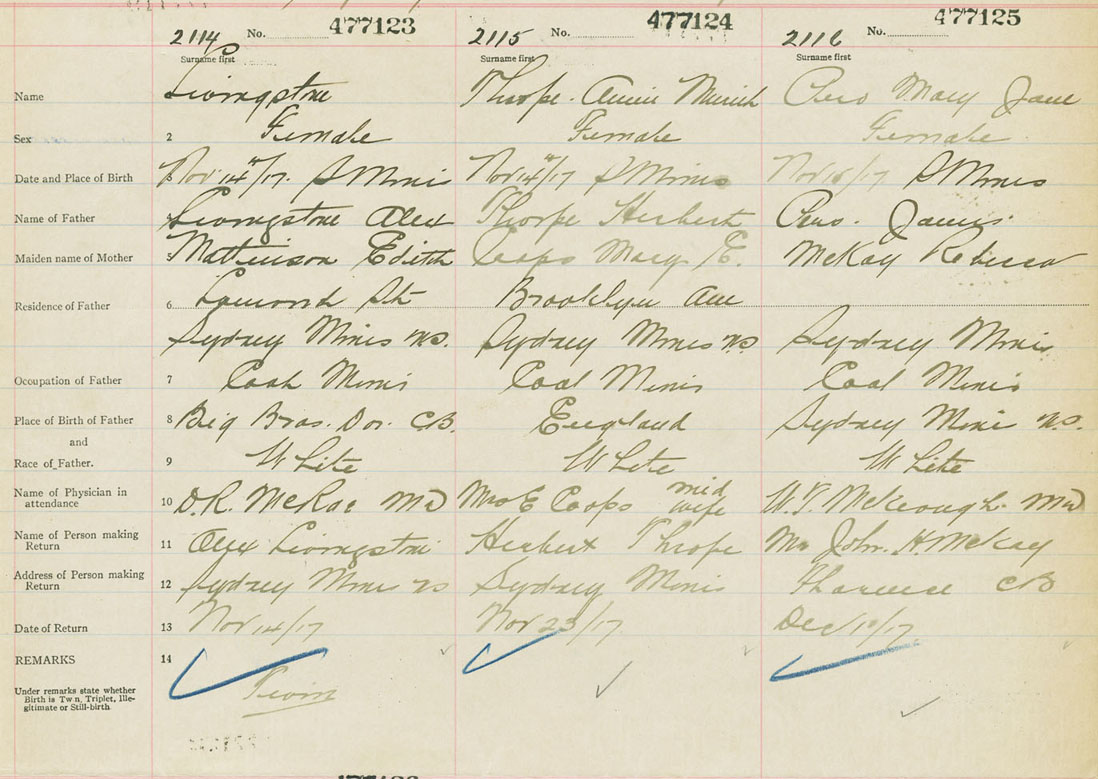 477123 477124 477125
2114 No. 2115 No. 2116 No.
Surname first Surname first Surname first
Name Livingstone Thorpe. Annie Mary Jane
Sex 2 Female Female Female
Date and Place of Birth 3 Nov 14/17. S Mines Nov 14/17 S Mines Nov 18/17 S Mines
Name of Father Livingstone Alex Thorpe Herbert James
Maiden name of Mother Edith Coops Mary E. McKay Rebecca
Residence of Father 6 St Brooklyn Ave
Sydney Mines NS. Sydney Mines NS Sydney Mines
Occupation of Father 7 Coal Mines Coal Mines Coal Mines
Place of Birth of Father 8 Big Bras. Dor. CB. England Sydney Mines N.S.
and
Race of Father. 9 White White White
Name of Physician in
attendance 10 D.R. McRae MD Mrs E Coops mid wife McKeough. MD
Name of Person making
Return 11 Alex Livingstone Herbert Thorpe Mr John. H McKay
Address of Person making
Return 12 Sydney Mines NS Sydney Mines Florence CB
Date of Return 13 Nov 14/17 Nov 23/17 Dec 1st/17
REMARKS 14
Under remarks state whether
Birth is Twin, Triplet, Ille-
gitimate or Still-birth
Twin